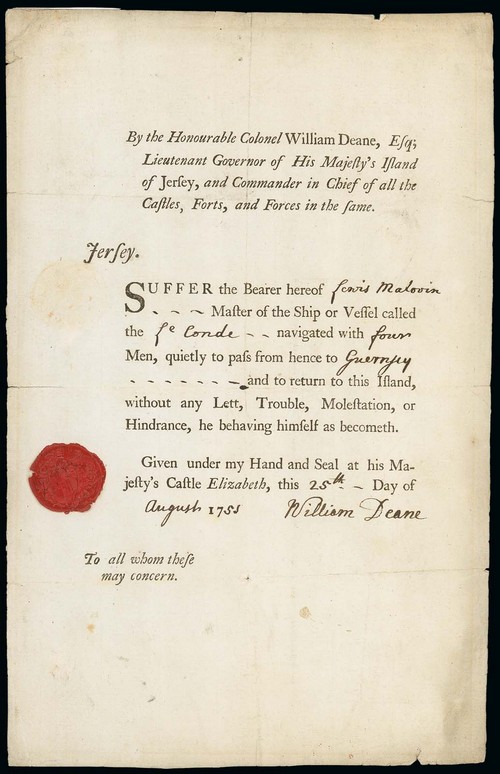 By the Honourable Colonel William Deane, Eſq;
Lieutenant Governor of His Majeſty's Iſland
of Jerſey, and Commander in Chief of all the
Caſtles, Forts, and Forces in the ſame.
Jerſey.
SUFFER the Bearer hereof Lewis Malovin
- - - Maſter of the Ship or Veſſel called
the Le Conde - - navigated with four
Men, quietly to paſs from hence to Guernſey
- - - - - - - and to return to this Iſland,
without any Lett, Trouble, Moleſtation, or
Hindrance, he behaving himſelf as becometh.
Given under my Hand and Seal at his Ma-
jeſty's Caſtle Elizabeth, this 25th - Day of
August 1755 William Deane
To all whom theſe
may concern.